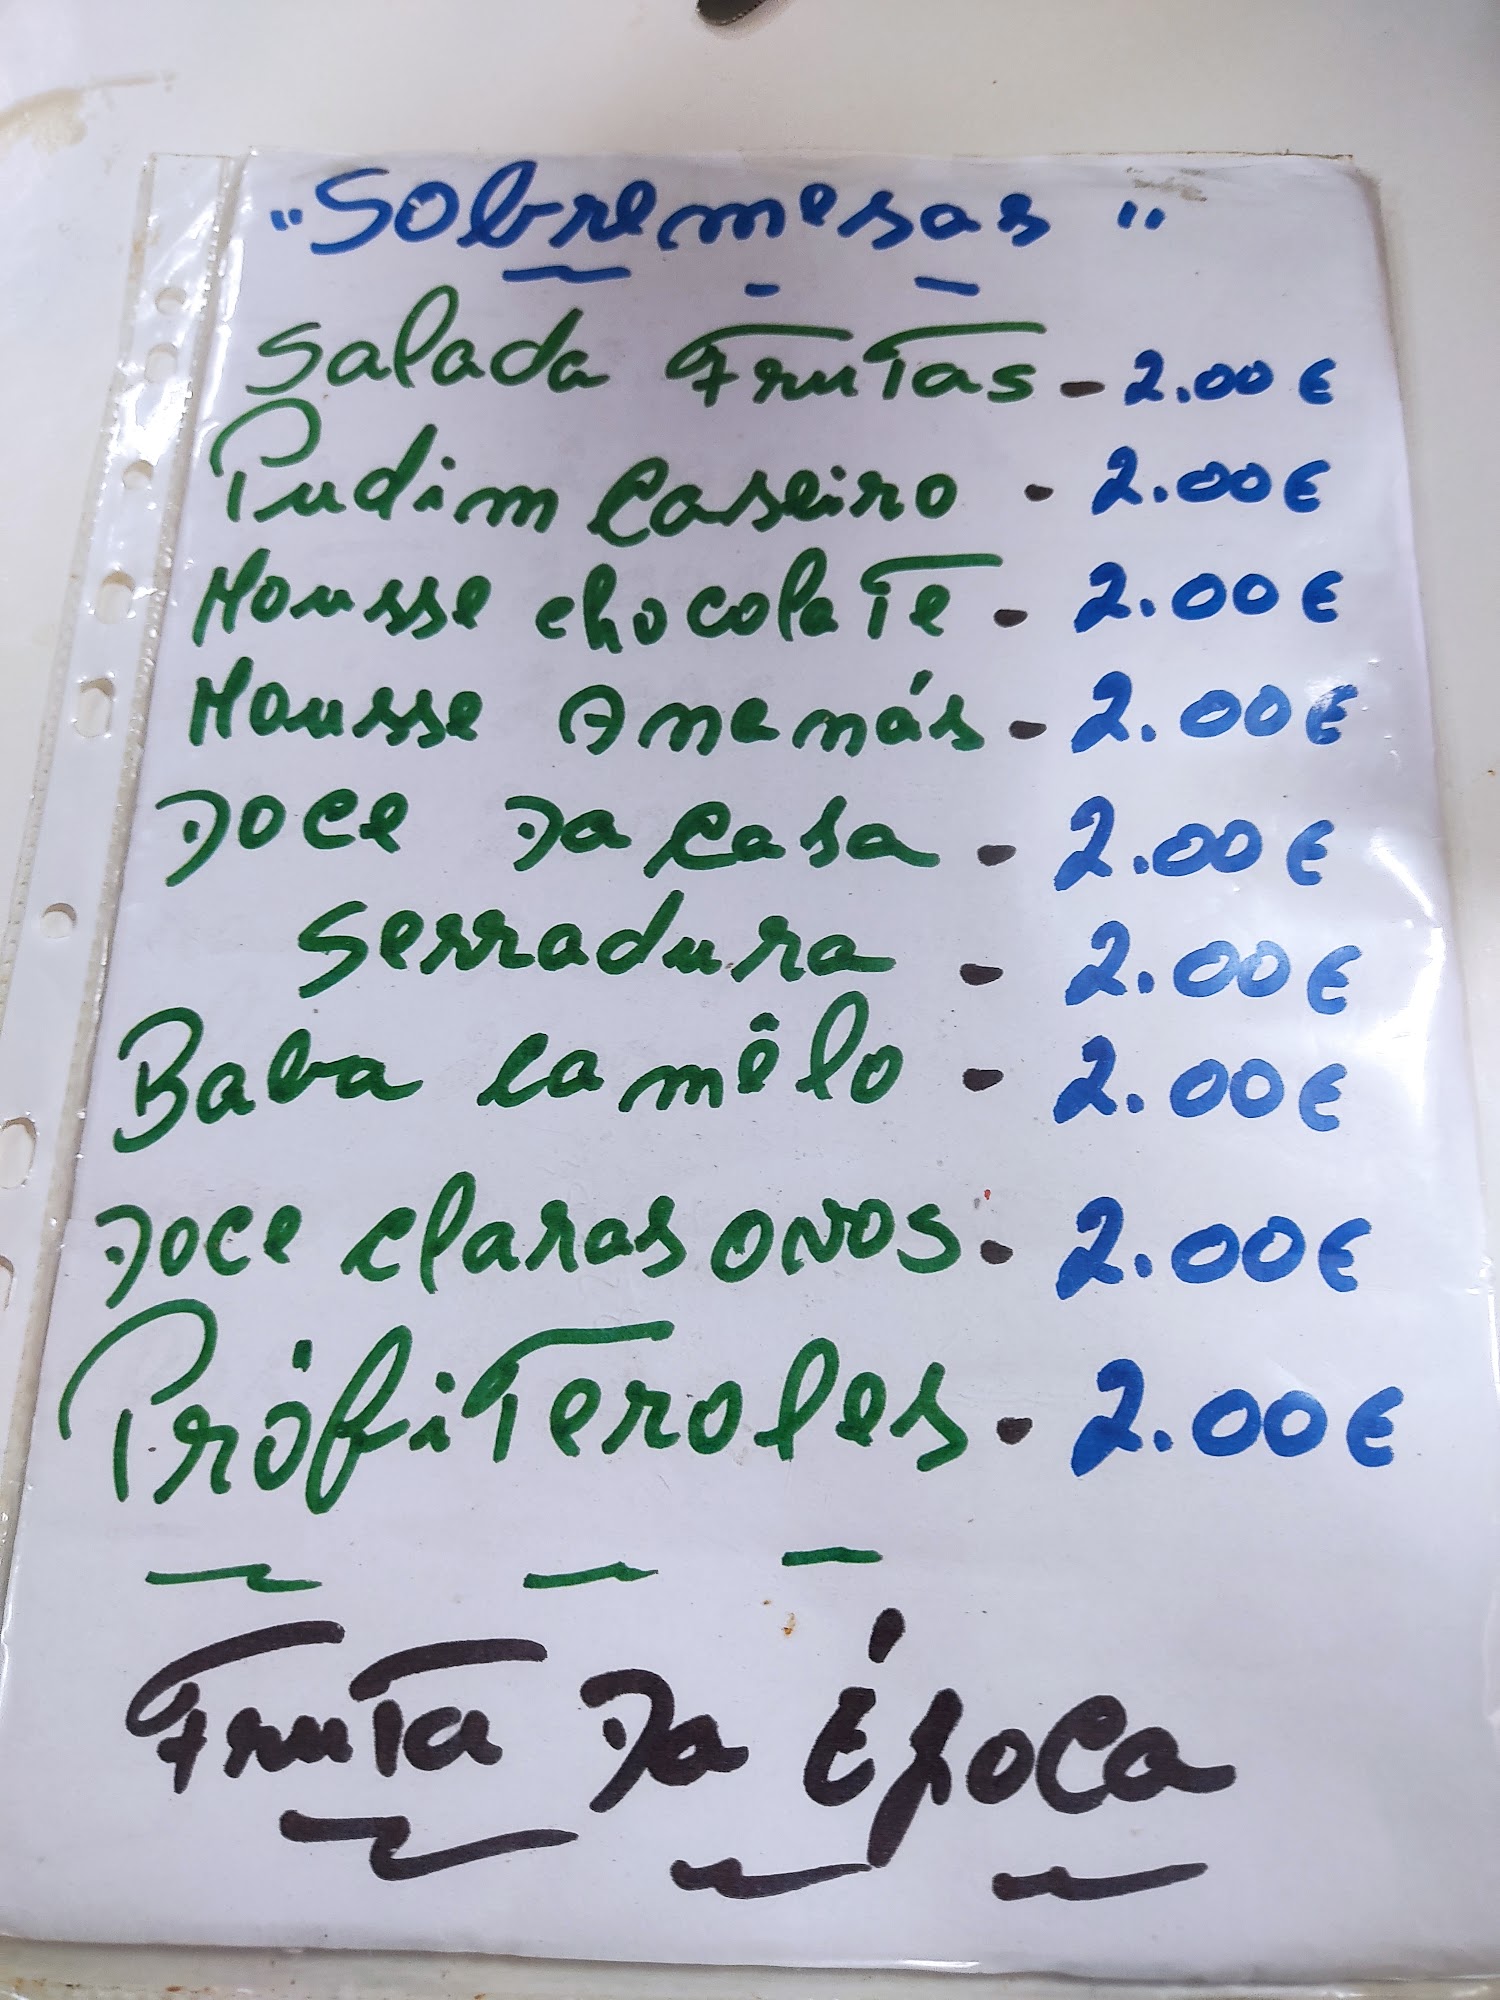 "Sobremesas"
Salada Frutas - 2.00 €
Pudim Caseiro - 2.00 €
Mousse chocolate - 2.00 €
Mousse Ananás - 2.00 €
Doce Da Casa - 2.00 €
Serradura - 2.00 €
Baba Camêlo - 2.00 €
Doce Claras ovos - 2.00 €
Prófiteroles - 2.00 €
Fruta Da Época